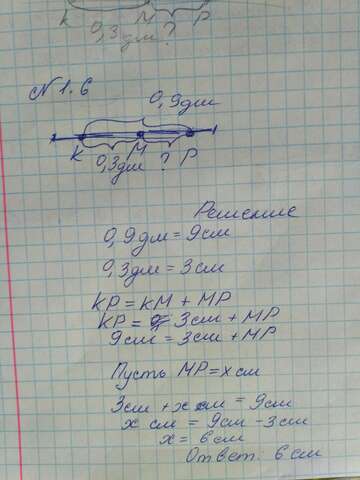 K M P
0,3дм ?
N 1.6
0,9дм
K M P
0,3дм ?
Решение
0,9дм = 9см
0,3дм = 3см
KP = KM + MP
KP = 3см + MP
9см = 3см + MP
Пусть MP = x см
3см + x см = 9см
x см = 9см - 3см
x = 6см
Ответ: 6см